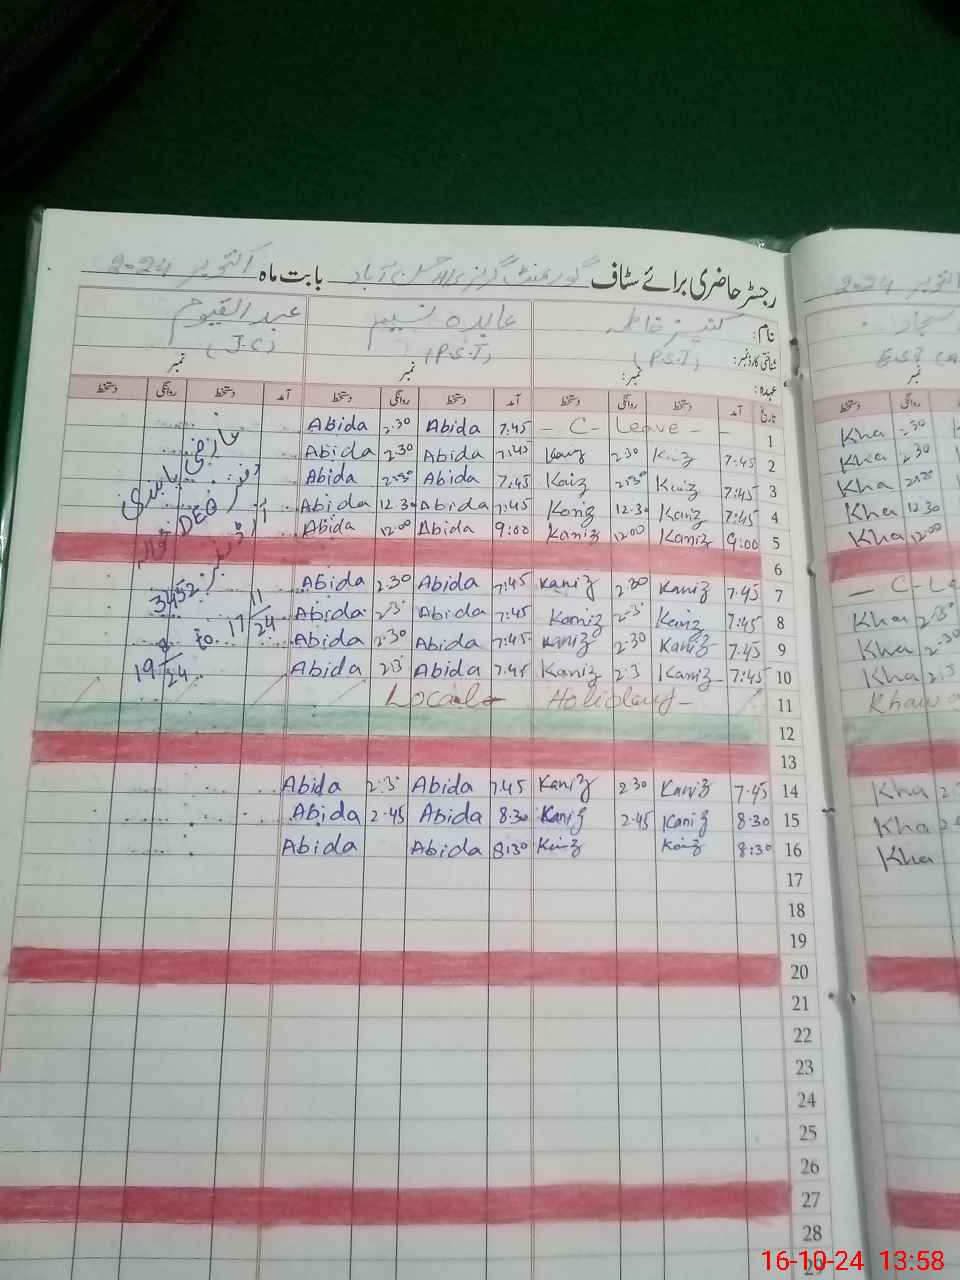 رجسٹر حاضری برائے سٹاف گورنمنٹ گرلز حسن آباد بابت ماہ اکتوبر 2-24
نام: کنیز فاطمہ عابدہ نسیم عبدالقیوم
شناختی کارڈ نمبر: (P.S.T) (P.S.T) (J.C)
عہدہ: نمبر: نمبر نمبر
تاریخ آمد دستخط روانگی دستخط آمد دستخط روانگی دستخط آمد دستخط روانگی دستخط
Abida 2.30 Abida 7:45 - C - Leave - - 1 Kha 2.30
Abida 2.30 Abida 7:45 Kaniz 2.30 Kaniz 7:45 2 Kha 2.30
Abida Abida 7:45 Kaniz Kaniz 7:45 3 Kha
Abida 12.30 Abida 7:45 Kaniz 12.30 Kaniz 7:45 4 Kha 12.30
Abida 12.00 Abida 9:00 Kaniz 12.00 Kaniz 9:00 5 Kha 12.00
6
Abida 2.30 Abida 7.45 Kaniz 2.30 Kaniz 7.45 7 - C - Le
Abida 2.3 Abida 7:45 Kaniz 2.3 Kaniz 7:45 8 Kha
Abida 2.30 Abida 7:45 Kaniz 2.30 Kaniz 7.45 9 Kha 2.30
Abida 2.3 Abida 7.45 Kaniz 2.3 Kaniz 7:45 10 Kha 2.3
Local - Holiday - 11
12
13
Abida 2.3 Abida 7.45 Kaniz 2.30 Kaniz 7.45 14 Kha
Abida 2.45 Abida 8.30 Kaniz 2.45 Kaniz 8.30 15 Kha
Abida Abida 8:30 Kaniz Kaniz 8:30 16 Kha
17
18
19
20
21
22
23
24
25
26
27
28
29
عارضی پابندی
دفتر DEO
آرڈر نمبر 3452
19 24 to 17 11 24
اکتوبر 2-24
16-10-24 13:58